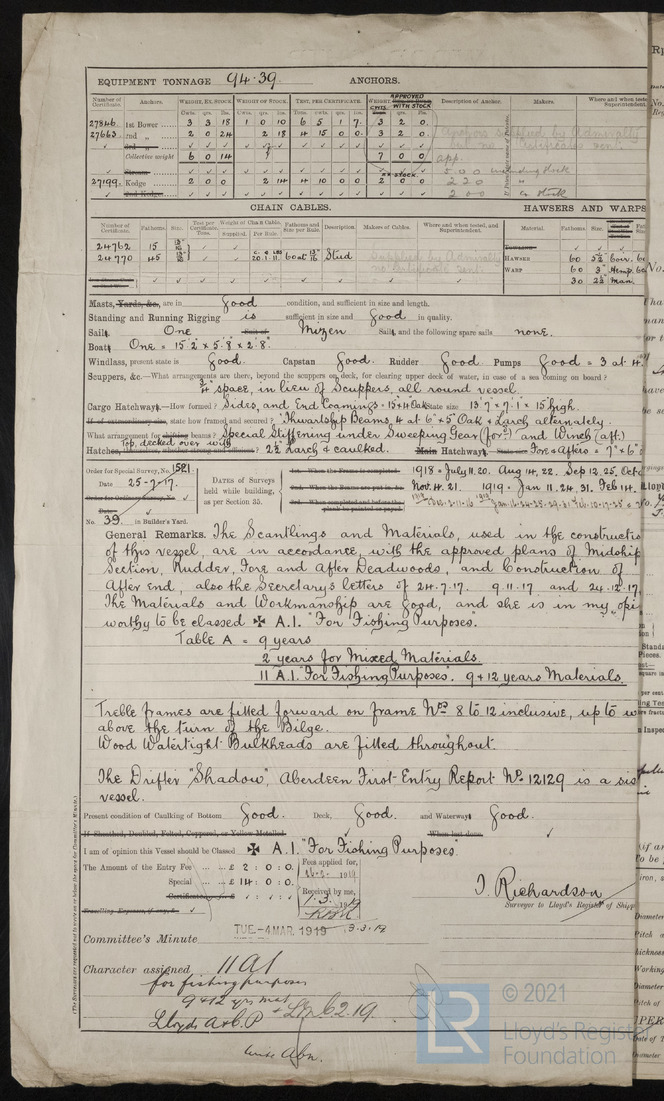 EQUIPMENT TONNAGE 94.39. ANCHORS.
Number of Certificate. Anchors. WEIGHT, EX. STOCK WEIGHT OF STOCK. TEST, PER CERTIFICATE. WEIGHT APPROVED WITH STOCK Description of Anchor. Makers. Where and when tested Superintendent.
Cwts. qrs. lbs. Cwts. qrs. lbs. Tons. cwts. qrs. lbs. Cwts. qrs. lbs.
27846 1st Bower 3 3 18 1 0 10 6 5 1 7 3 2 0
27663 2nd „ 2 0 24 2 18 4 15 0 0 3 2 0 Anchors supplied by Admiralty
3rd „ but no certificates sent.
Collective weight 6 0 14 7 0 0 app.
Stream 5 0 0 including stock
Ex stock.
27199 Kedge 2 0 0 2 14 4 10 0 0 2 0 0 2 2 0 „
2nd Kedge 2 0 0 ex stock
CHAIN CABLES. HAWSERS AND WARPS
Number of Certificate. Fathoms. Size. Test per Certificate. Tons. Weight of Chain Cable. Supplied. Per Rule. Fathoms and Size per Rule. Description Makers of Cables. Where and when tested, and Superintendent. Material. Fathoms Size.
24762 15 13/16
24770 45 13/16 20.1.11 60 at 13/16 Stud Supplied by Admiralty
no certificate sent.
HAWSER 60 5½" Coir.
WARP 60 3" Hemp.
30 2½" Man.
Masts, Yards, &c., are in good condition, and sufficient in size and length.
Standing and Running Rigging is sufficient in size and good in quality.
Sails. One Suit of Mizen Sails, and the following spare sails none.
Boats One = 15.2 x 5.8 x 2.8.
Windlass, present state is Good. Capstan Good. Rudder Good Pumps Good = 3 at 4"
Scuppers, &c.—What arrangements are there, beyond the scuppers on deck, for clearing upper deck of water, in case of a sea coming on board?
¾" space, in lieu of Scuppers, all round vessel
Cargo Hatchways.—How formed? Sides, and End Coamings = 15 x 4 Oak State size 13.7 x 7.1 x 15 high.
If of extraordinary size, state how framed and secured? Thwartship Beams, 4 at 6" x 5" Oak & Larch alternately.
What arrangement for shifting beams? Special Stiffening under Sweeping Gear (for'd) and Winch (aft.)
Top, decked over with
Hatches, 2½" Larch & caulked. Main Hatchways. State size Fore & Afters = 7" x 6"
Order for Special Survey, No. 1521.
Date 25-7-17.
Order for Ordinary Survey, No.
Date
No. 39. in Builder's Yard.
DATES of Surveys held while building, as per Section 35.
1st. When the Frame is completed. 1918 = July 11. 20. Aug 14. 22. Sep 12. 25.
2nd. When the Beams are put in, &c. Nov. 4. 21. 1919 = Jan 11. 24. 31. Feb 14.
3rd. When completed and before the plank be painted or payed.
General Remarks. The Scantlings and Materials, used in the
of this vessel, are in accordance, with the approved plans of Midship
Section, Rudder, Fore and After Deadwoods, and Construction of
After end, also the Secretary's letters of 24.7.17. 9.11.17 and 24.12.17.
The Materials and Workmanship are good, and she is in my
worthy to be classed ✠ A.1. "For Fishing Purposes.
Table A = 9 years
2 years for Mixed Materials.
11 A.1. "For Fishing Purposes. 9 & 12 years Materials.
Treble frames are fitted forward on frame Nos 8 to 12 inclusive, up to
above the turn of the Bilge.
Wood Watertight Bulkheads are fitted throughout.
The Drifter "Shadow", Aberdeen First Entry Report No. 12129 is a
vessel.
Present condition of Caulking of Bottom Good. Deck, Good. and Waterways Good.
If Sheathed, Doubled, Felted, Coppered, or Yellow Metalled When last done
I am of opinion this Vessel should be Classed ✠ A.1. "For Fishing Purposes."
The Amount of the Entry Fee ... £ 2 : 0 : 0. Fees applied for,
Special ... £ 14 : 0 : 0. 1919
Certificate ... £ Received by me,
Travelling Expenses, if any, £ 1.3.1919
J. Richardson
Surveyor to Lloyd's Register of
Committee's Minute TUE-4 MAR. 1919 3.3.19
Character assigned 11 A1
for fishing purposes
9 & 12 yrs mat
Lloyds A & C.P
© 2021
LR Lloyd's Register
Foundation